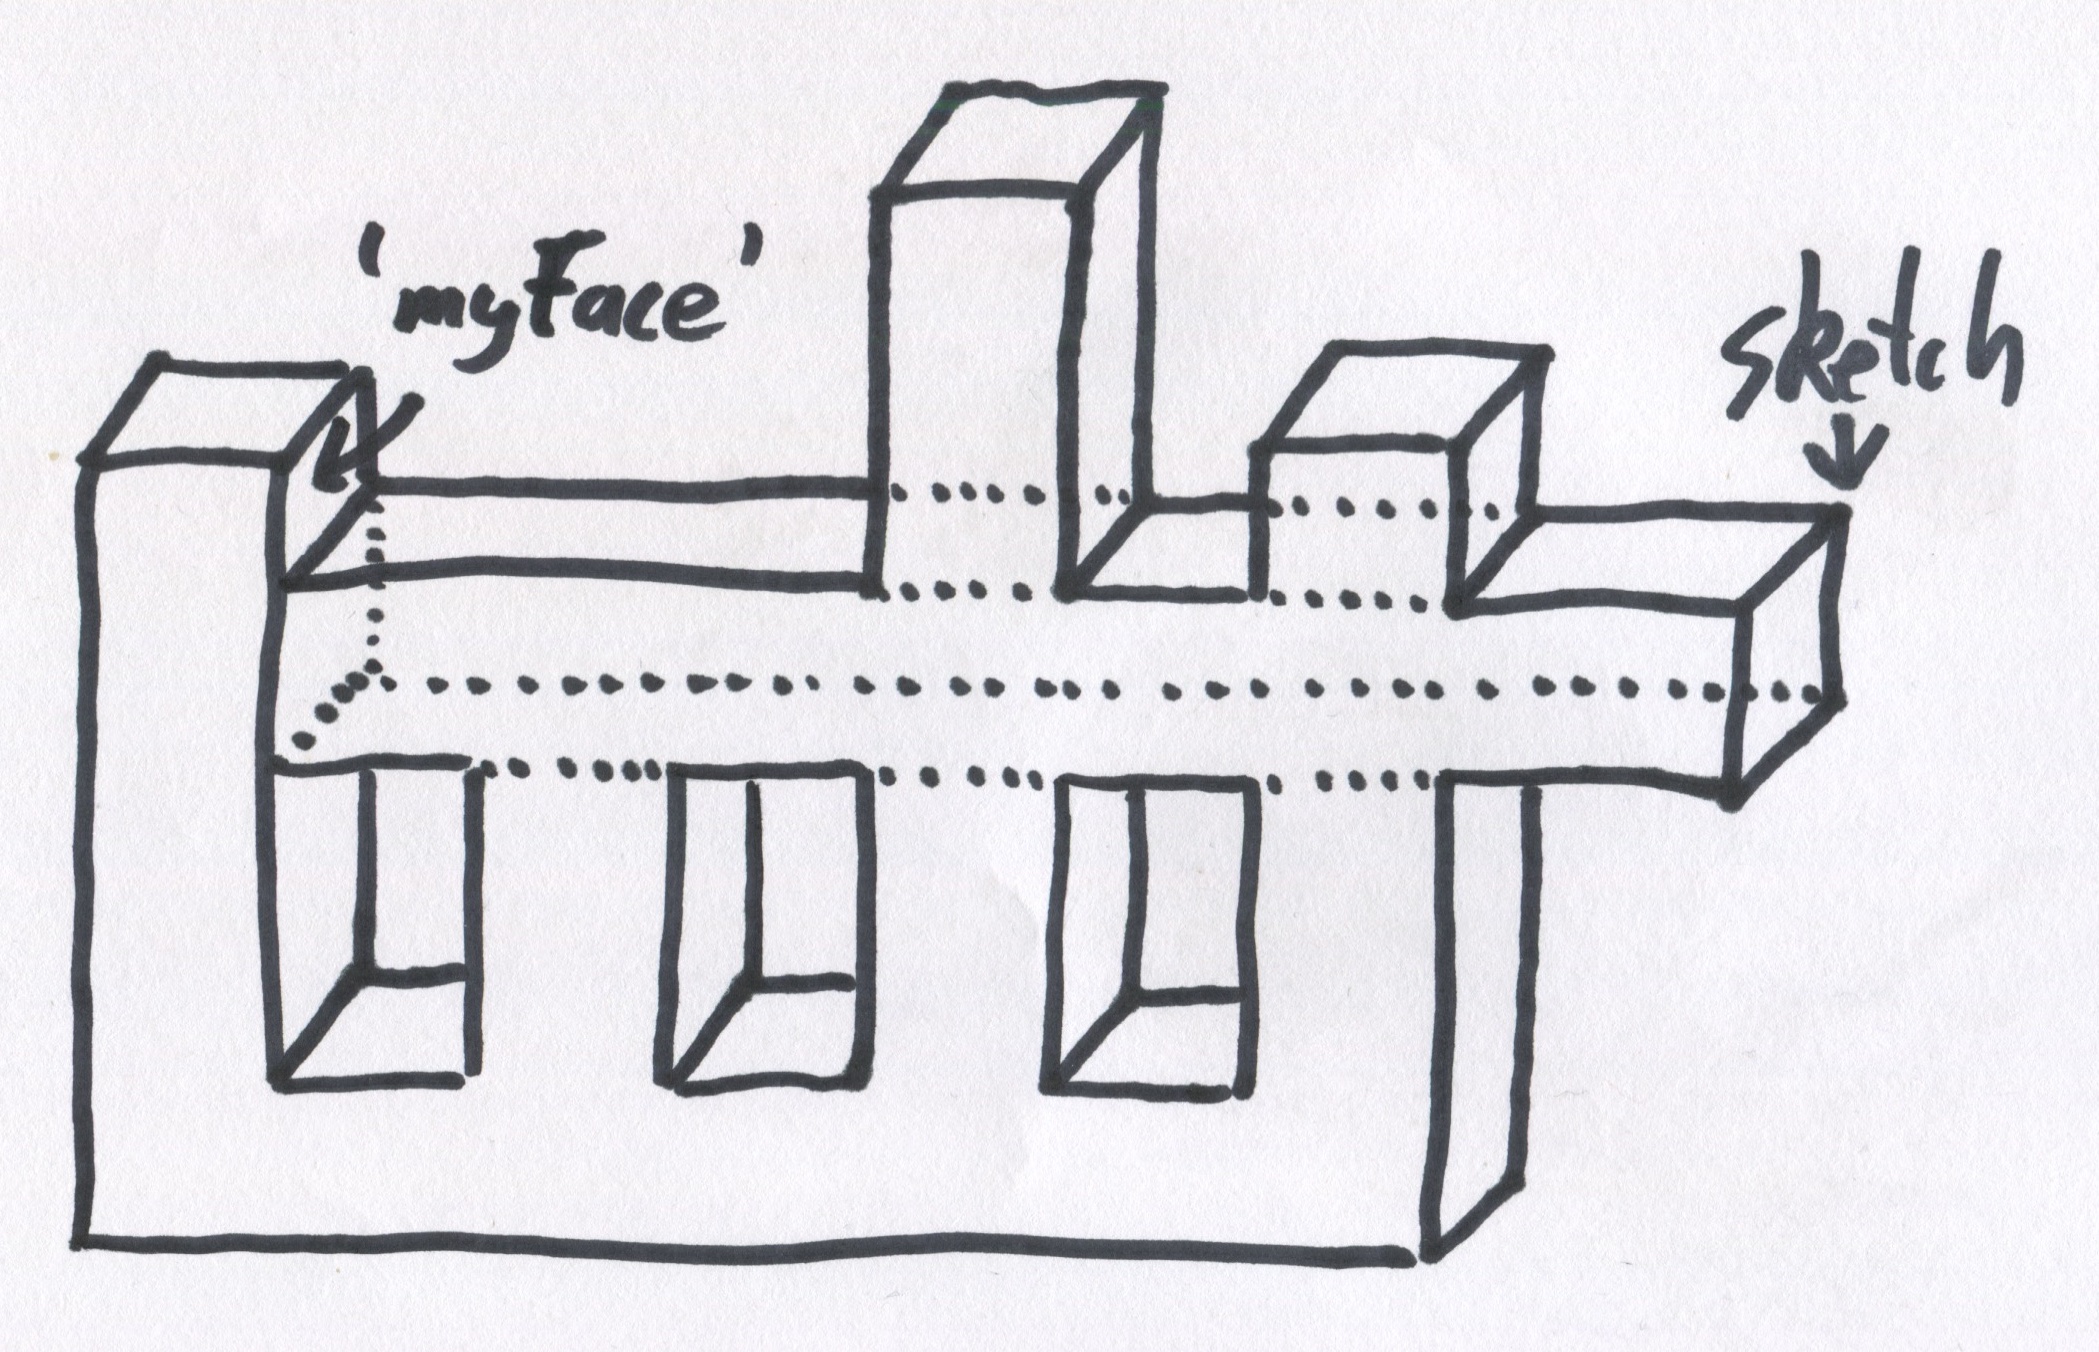 'myFace'
sketch